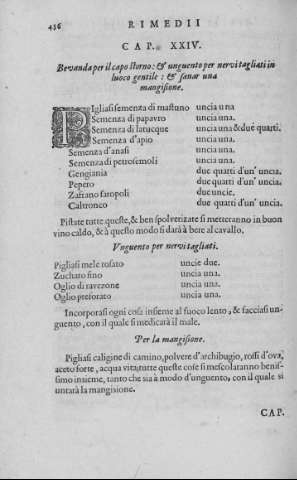 456 RIMEDII
CAP. XXIV.
Bevanda per il capo storno: & unguento per nervi tagliati in
luoco gentile: & sanar una
mangisione.
Bigliasi semenza di mastuno uncia una
Semenza di papavro uncia una.
Semenza di latucque uncia una & due quarti.
Semenza d'apio uncia una.
Semenza d'anasi uncia una.
Semenza di petrosemoli uncia una.
Gengiania due quarti d'un' uncia.
Pepero due quarti d'un' uncia.
Zafrano saropoli due uncie.
Caltronco due quarti d'un' uncia.
Pistate tutte queste, & ben spolverizate si metteranno in buon
vino caldo, & à questo modo si darà à bere al cavallo.
Unguento per nervi tagliati.
Pigliasi mele rosato uncie due.
Zucharo fino uncia una.
Oglio di ravezone uncia una.
Oglio preforato uncia una.
Incorporasi ogni cosa insieme al fuoco lento, & facciasi un-
guento, con il quale si medicarà il male.
Per la mangisione.
Pigliasi caligine di camino, polvere d'archibugio, rossi d'ova,
aceto forte, acqua vita, tutte queste cose si mescolaranno benis-
simo insieme, tanto che sia à modo d'unguento, con il quale si
untarà la mangisione.
CAP.